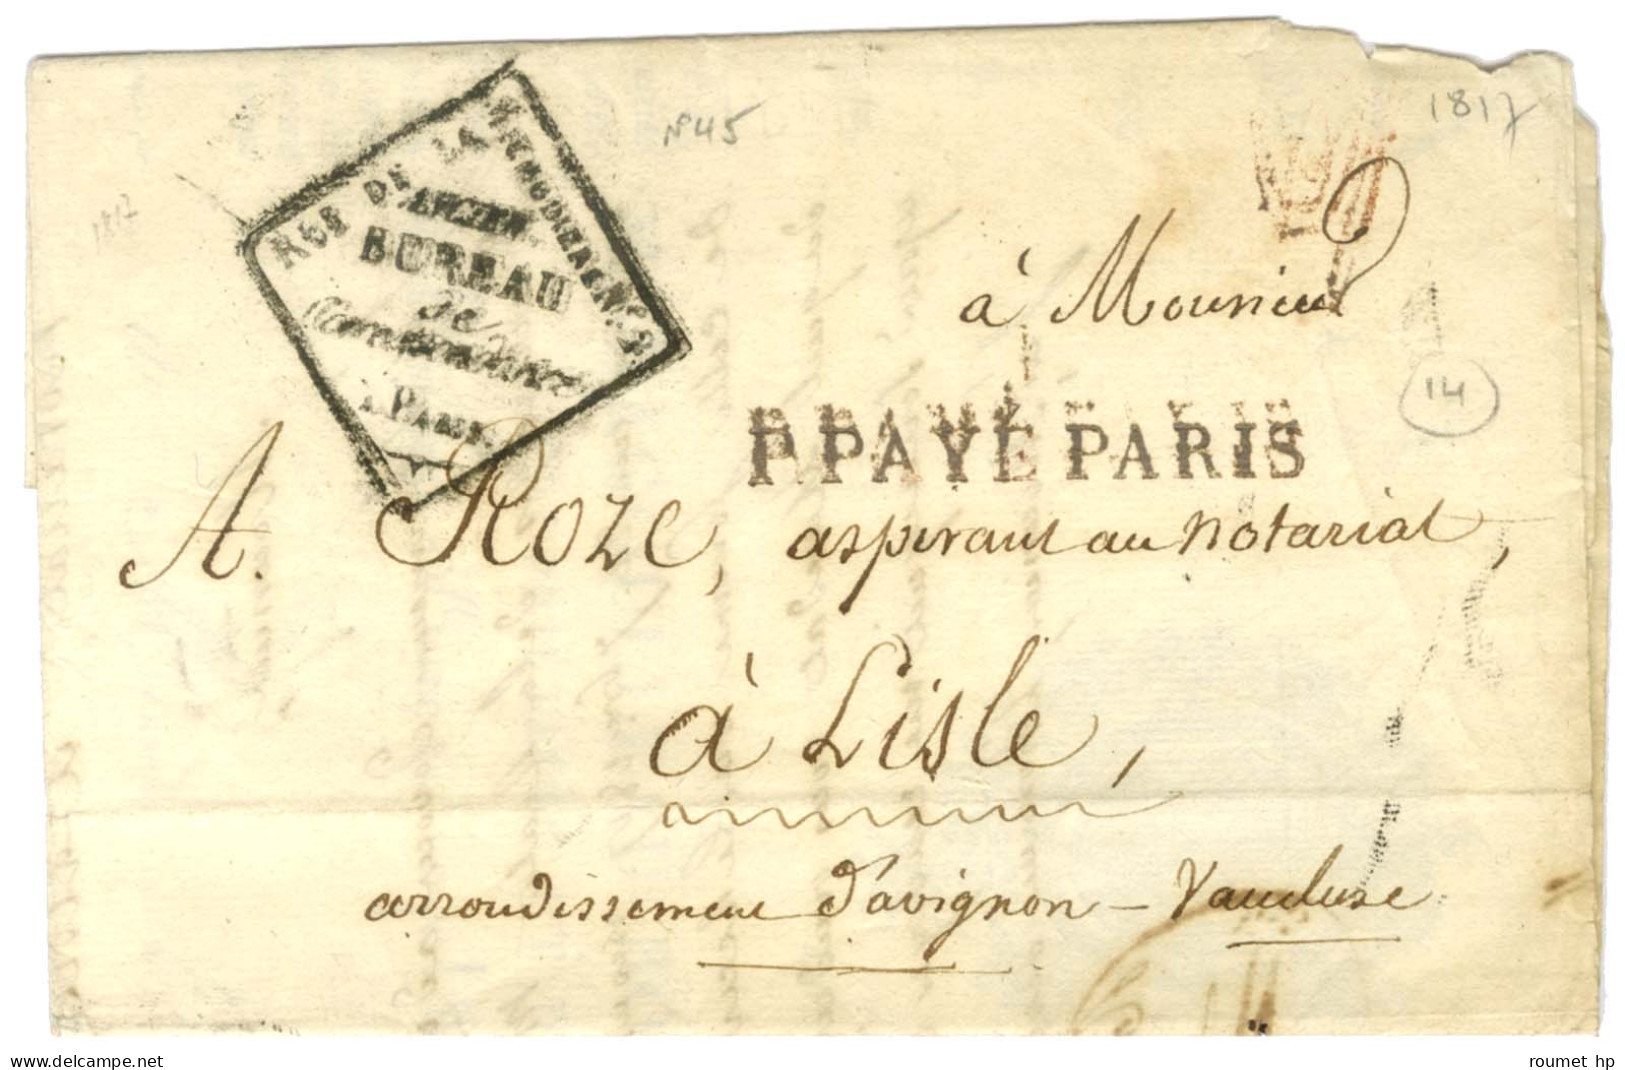 1817
N°45
1817
RUE DE LA
ANCIEN
BUREAU
de
PARIS
à Monsieur
14
P. PAYÉ PARIS
A. Roze, aspirant au notariat,
à Lisle,
arrondissement d'avignon - Vaucluse
www.delcampe.net
roumet hp